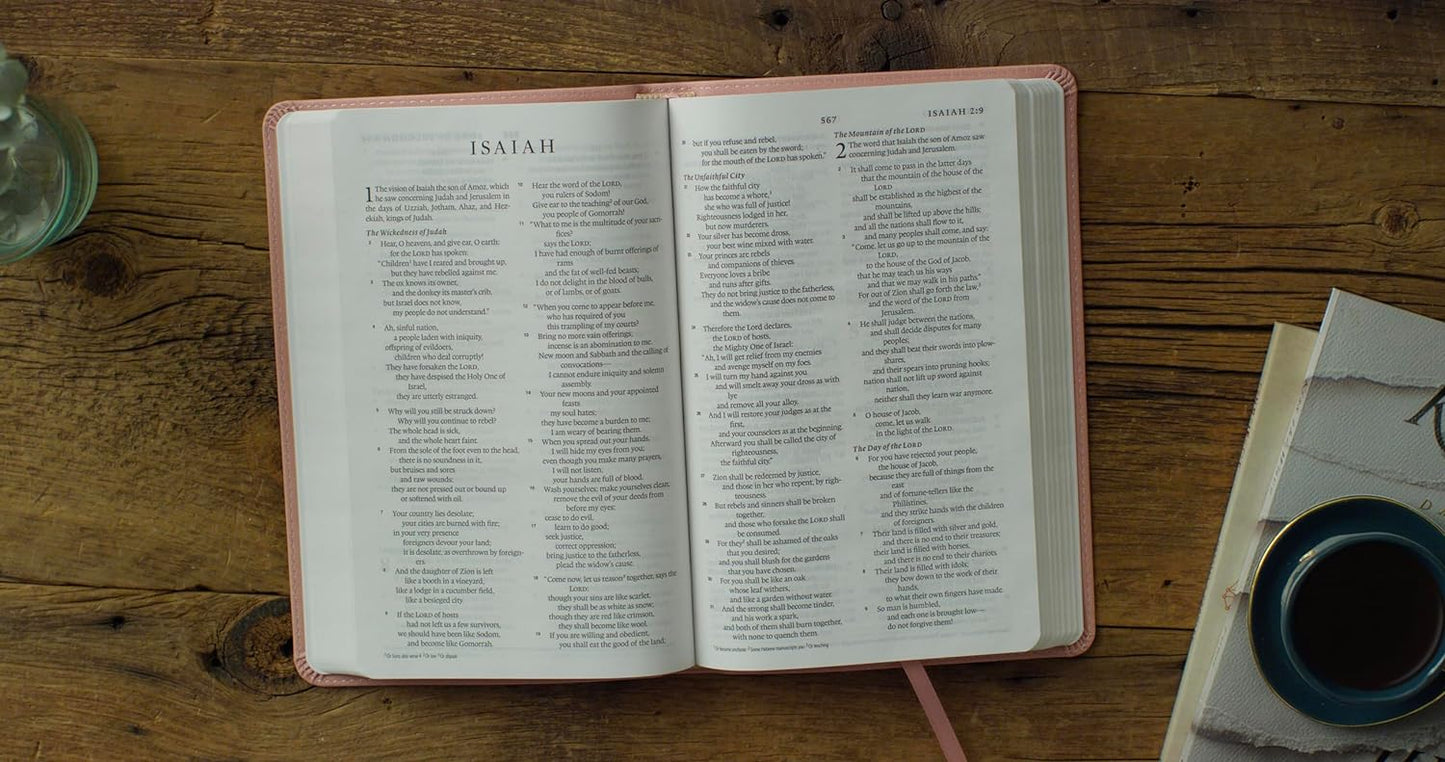 ISAIAH
1 The vision of Isaiah the son of Amoz, which
he saw concerning Judah and Jerusalem in
the days of Uzziah, Jotham, Ahaz, and Hez-
ekiah, kings of Judah.
The Wickedness of Judah
2 Hear, O heavens, and give ear, O earth;
for the LORD has spoken:
"Children1 have I reared and brought up,
but they have rebelled against me.
3 The ox knows its owner,
and the donkey its master's crib,
but Israel does not know,
my people do not understand."
4 Ah, sinful nation,
a people laden with iniquity,
offspring of evildoers,
children who deal corruptly!
They have forsaken the LORD,
they have despised the Holy One of
Israel,
they are utterly estranged.
5 Why will you still be struck down?
Why will you continue to rebel?
The whole head is sick,
and the whole heart faint.
6 From the sole of the foot even to the head,
there is no soundness in it,
but bruises and sores
and raw wounds;
they are not pressed out or bound up
or softened with oil.
7 Your country lies desolate;
your cities are burned with fire;
in your very presence
foreigners devour your land;
it is desolate, as overthrown by foreign-
ers.
8 And the daughter of Zion is left
like a booth in a vineyard,
like a lodge in a cucumber field,
like a besieged city.
9 If the LORD of hosts
had not left us a few survivors,
we should have been like Sodom,
and become like Gomorrah.
10 Hear the word of the LORD,
you rulers of Sodom!
Give ear to the teaching2 of our God,
you people of Gomorrah!
11 "What to me is the multitude of your sacri-
fices?
says the LORD;
I have had enough of burnt offerings of
rams
and the fat of well-fed beasts;
I do not delight in the blood of bulls,
or of lambs, or of goats.
12 "When you come to appear before me,
who has required of you
this trampling of my courts?
13 Bring no more vain offerings;
incense is an abomination to me.
New moon and Sabbath and the calling of
convocations—
I cannot endure iniquity and solemn
assembly.
14 Your new moons and your appointed
feasts
my soul hates;
they have become a burden to me;
I am weary of bearing them.
15 When you spread out your hands,
I will hide my eyes from you;
even though you make many prayers,
I will not listen;
your hands are full of blood.
16 Wash yourselves; make yourselves clean;
remove the evil of your deeds from
before my eyes;
cease to do evil,
17 learn to do good;
seek justice,
correct oppression;
bring justice to the fatherless,
plead the widow's cause.
18 "Come now, let us reason3 together, says the
LORD:
though your sins are like scarlet,
they shall be as white as snow;
though they are red like crimson,
they shall become like wool.
19 If you are willing and obedient,
you shall eat the good of the land;
567
ISAIAH 2:9
20 but if you refuse and rebel,
you shall be eaten by the sword;
for the mouth of the LORD has spoken."
The Unfaithful City
21 How the faithful city
has become a whore,1
she who was full of justice!
Righteousness lodged in her,
but now murderers.
22 Your silver has become dross,
your best wine mixed with water.
23 Your princes are rebels
and companions of thieves.
Everyone loves a bribe
and runs after gifts.
They do not bring justice to the fatherless,
and the widow's cause does not come to
them.
24 Therefore the Lord declares,
the LORD of hosts,
the Mighty One of Israel:
"Ah, I will get relief from my enemies
and avenge myself on my foes.
25 I will turn my hand against you
and will smelt away your dross as with
lye
and remove all your alloy.
26 And I will restore your judges as at the
first,
and your counselors as at the beginning.
Afterward you shall be called the city of
righteousness,
the faithful city."
27 Zion shall be redeemed by justice,
and those in her who repent, by righ-
teousness.
28 But rebels and sinners shall be broken
together,
and those who forsake the LORD shall
be consumed.
29 For they2 shall be ashamed of the oaks
that you desired;
and you shall blush for the gardens
that you have chosen.
30 For you shall be like an oak
whose leaf withers,
and like a garden without water.
31 And the strong shall become tinder,
and his work a spark,
and both of them shall burn together,
with none to quench them.
The Mountain of the LORD
2 The word that Isaiah the son of Amoz saw
concerning Judah and Jerusalem.
2 It shall come to pass in the latter days
that the mountain of the house of the
LORD
shall be established as the highest of the
mountains,
and shall be lifted up above the hills;
and all the nations shall flow to it,
3 and many peoples shall come, and say:
"Come, let us go up to the mountain of the
LORD,
to the house of the God of Jacob,
that he may teach us his ways
and that we may walk in his paths."
For out of Zion shall go forth the law,3
and the word of the LORD from
Jerusalem.
4 He shall judge between the nations,
and shall decide disputes for many
peoples;
and they shall beat their swords into plow-
shares,
and their spears into pruning hooks;
nation shall not lift up sword against
nation,
neither shall they learn war anymore.
5 O house of Jacob,
come, let us walk
in the light of the LORD.
The Day of the LORD
6 For you have rejected your people,
the house of Jacob,
because they are full of things from the
east
and of fortune-tellers like the
Philistines,
and they strike hands with the children
of foreigners.
7 Their land is filled with silver and gold,
and there is no end to their treasures;
their land is filled with horses,
and there is no end to their chariots.
8 Their land is filled with idols;
they bow down to the work of their
hands,
to what their own fingers have made.
9 So man is humbled,
and each one is brought low—
do not forgive them!